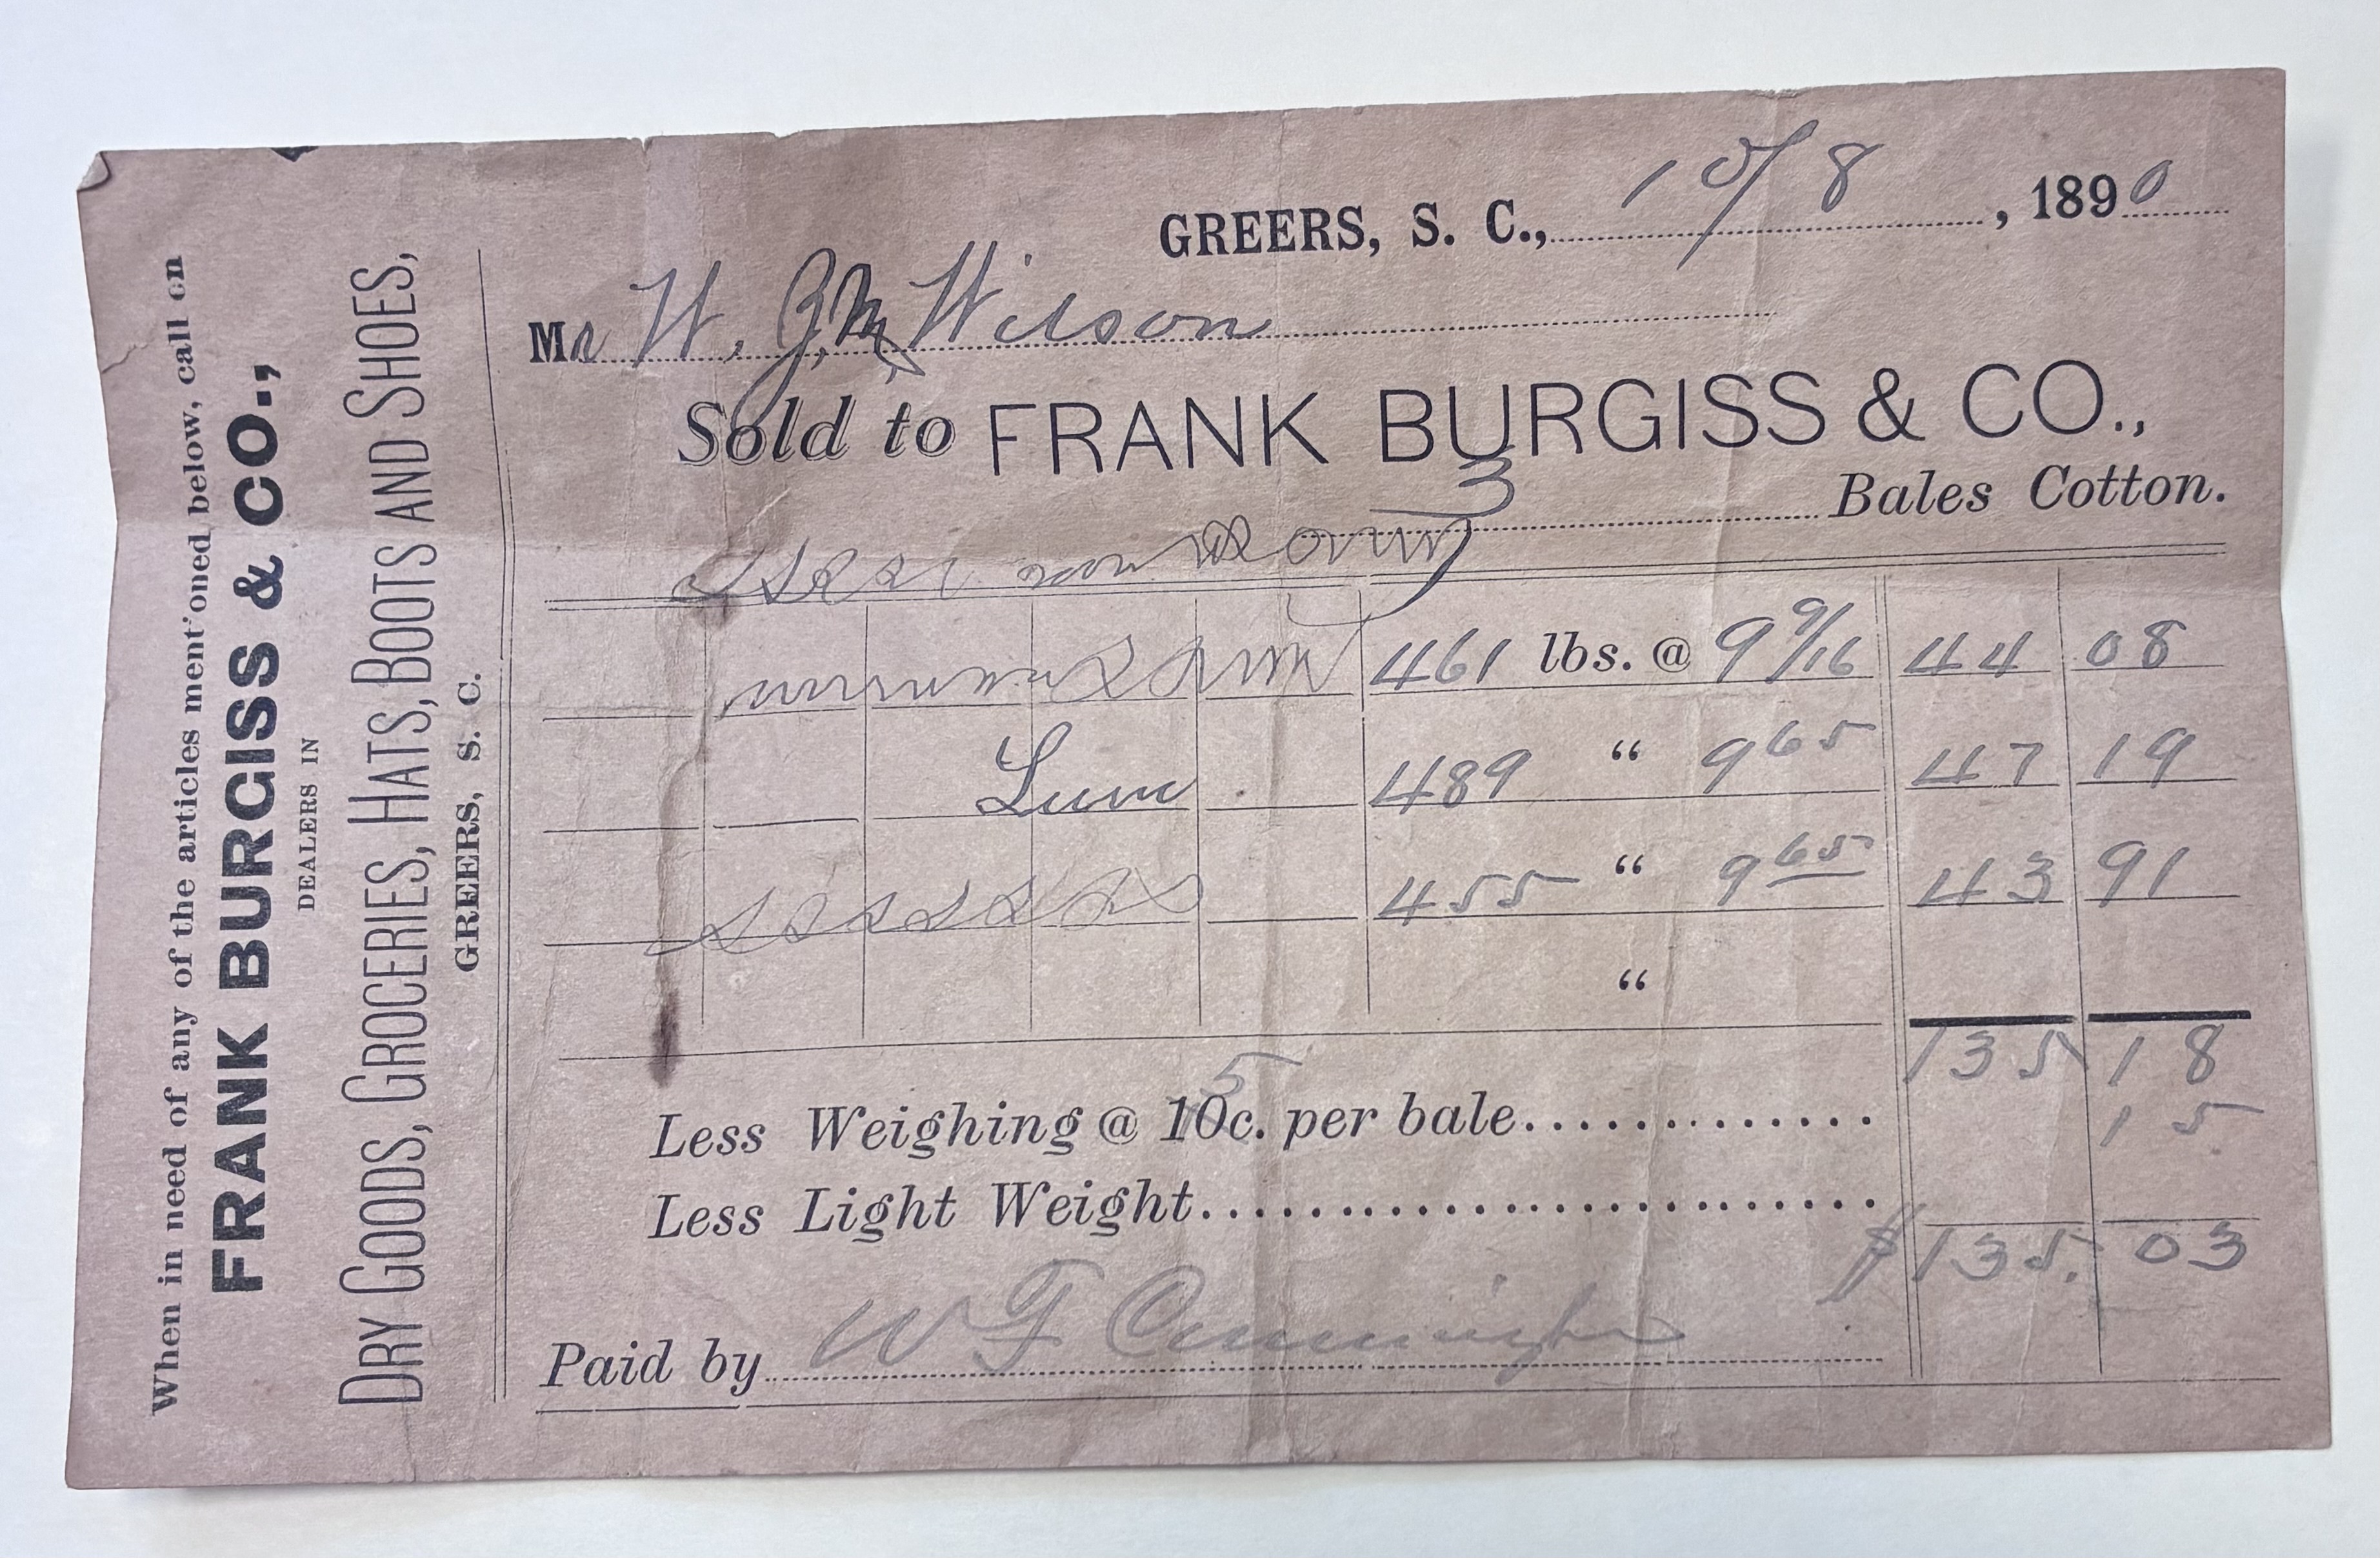 When in need of any of the articles ment'oned below, call on
FRANK BURGISS & CO.,
DEALERS IN
DRY GOODS, GROCERIES, HATS, BOOTS AND SHOES,
GREERS, S. C.
GREERS, S. C., 10/8, 1890
Mr W. J. M. Wilson
Sold to FRANK BURGISS & CO.,
3 Bales Cotton.
461 lbs. @ 9 9/16 44 08
489 " 9 65 47 19
455 " 9 65 43 91
"
135 18
Less Weighing @ 10c. 5 per bale............. 15
Less Light Weight........................
$135. 03
Paid by W F